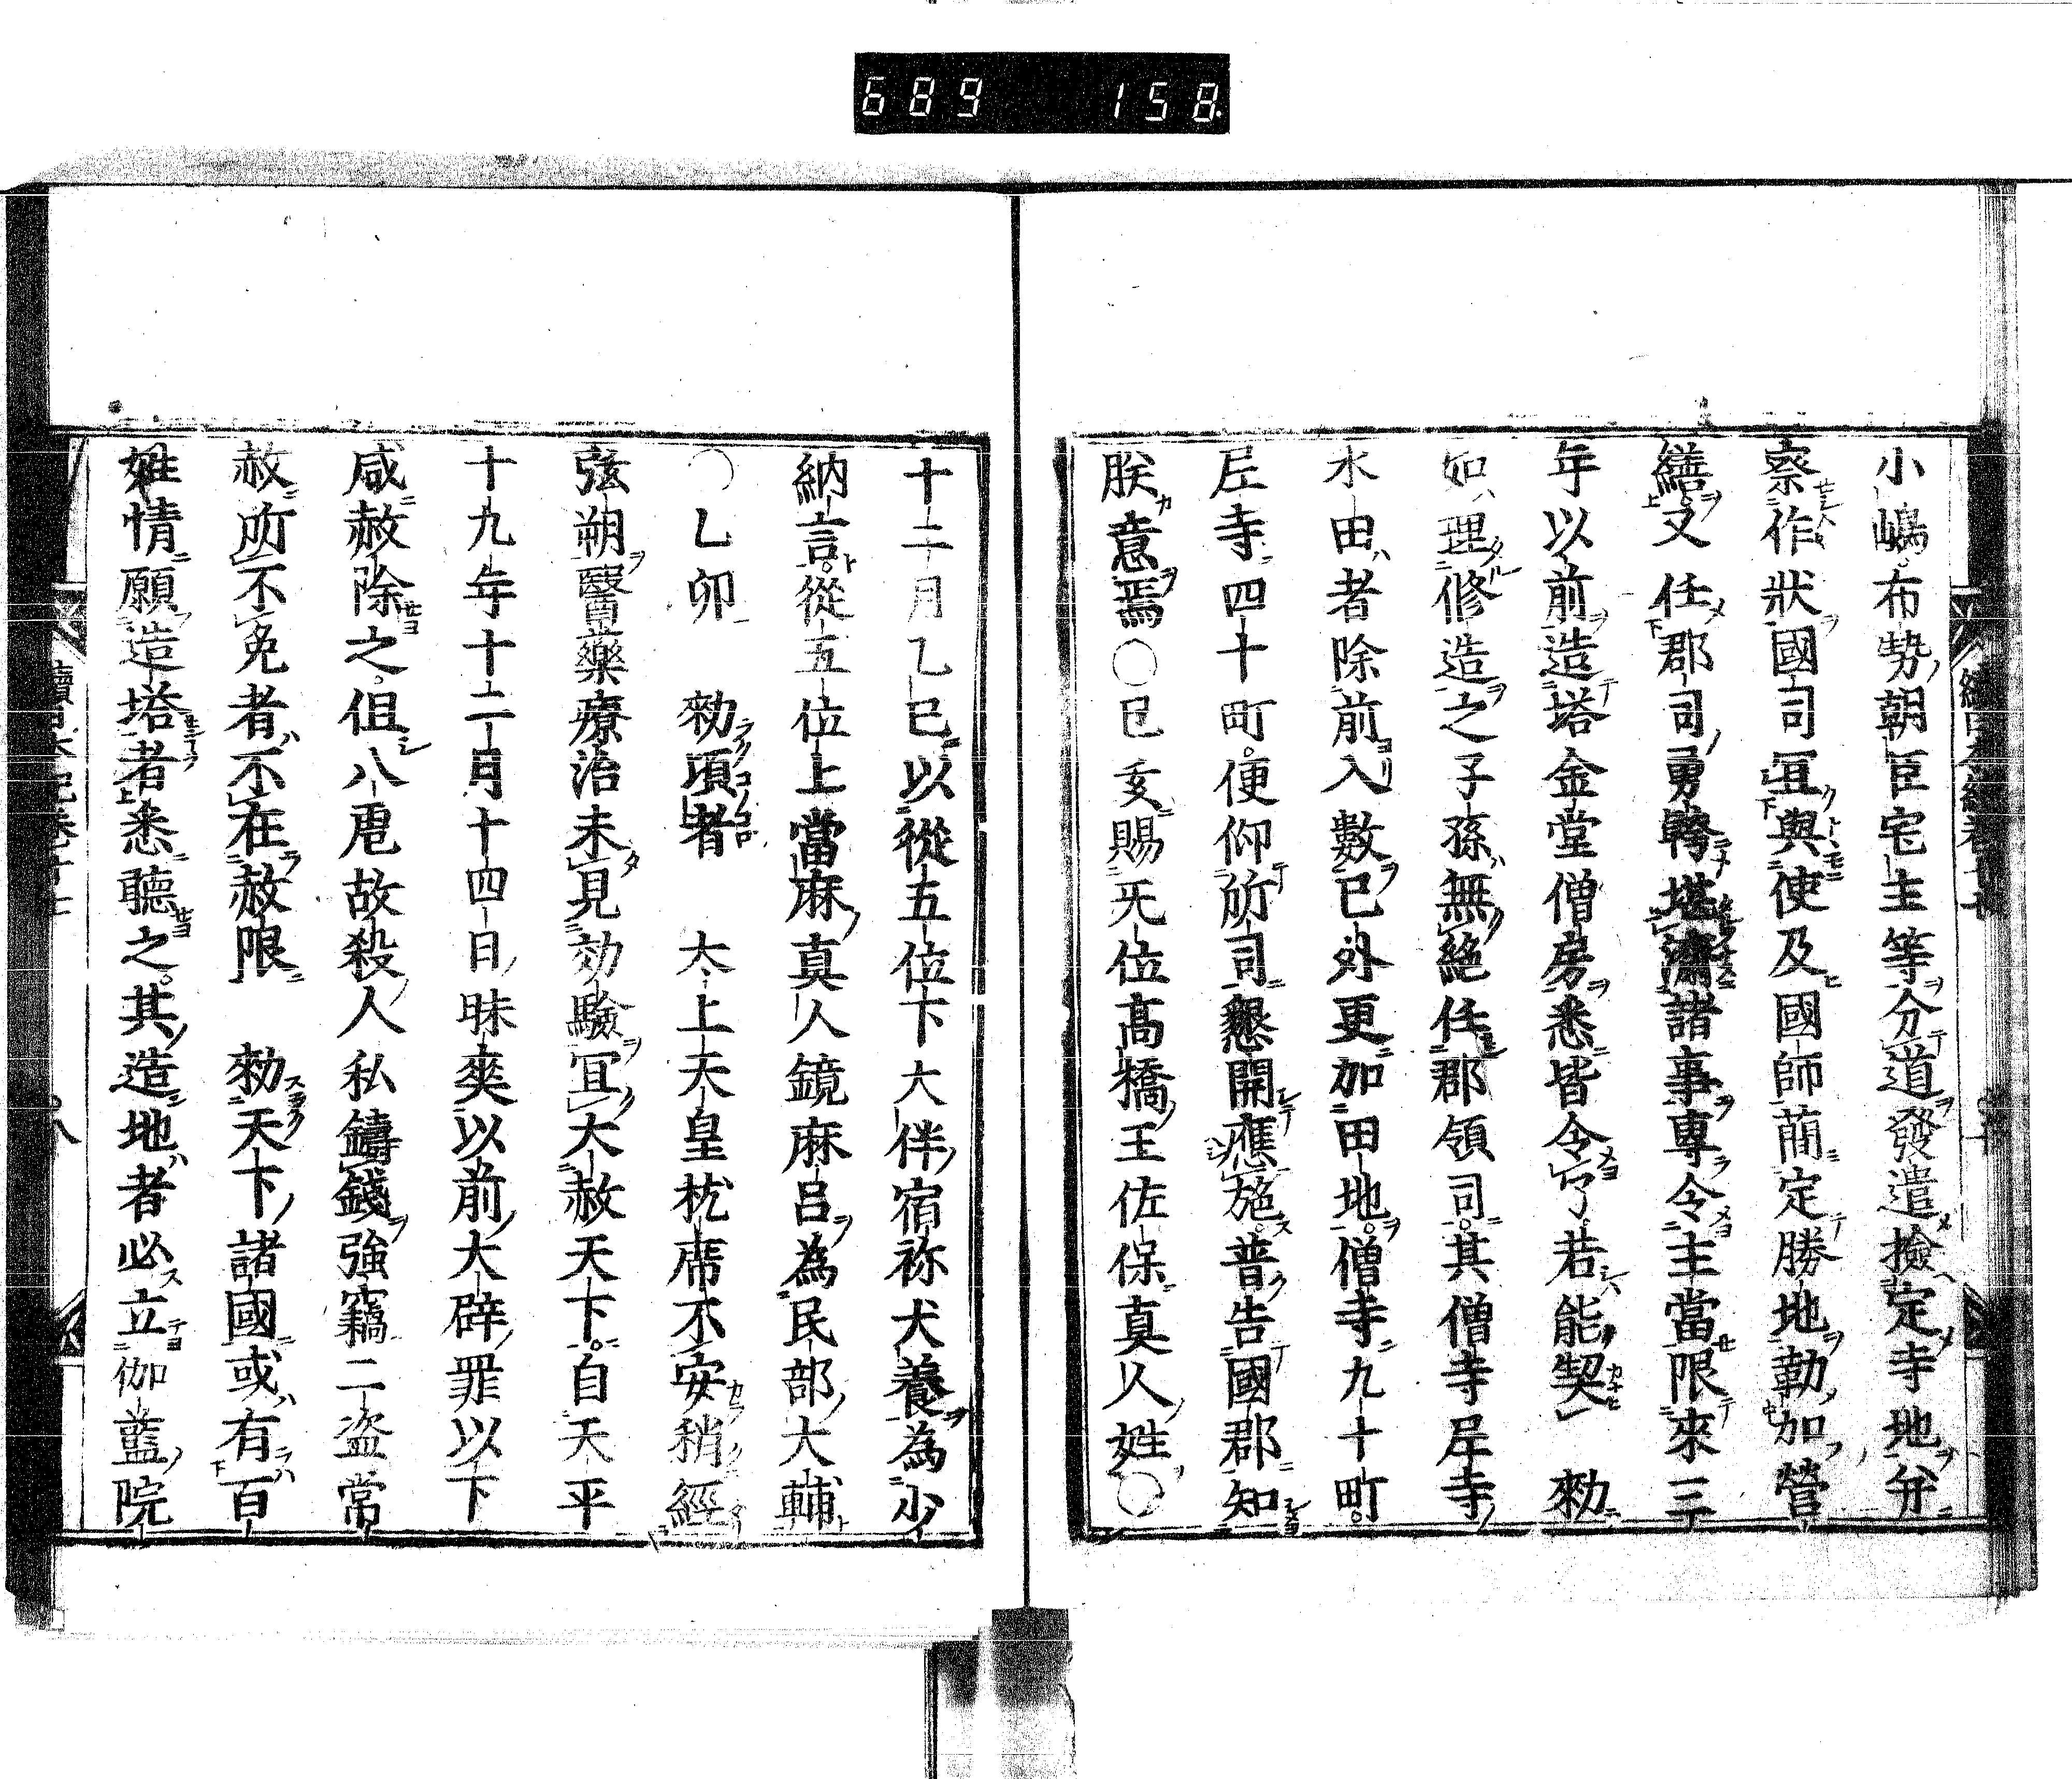 689 158
小嶋布勢朝臣宅主等分道發遣撿定寺地并
察作狀國司冝與使及國師蕳定勝地勤加營
繕又任郡司勇幹堪濟諸事專令主當限來三
年以前造塔金堂僧房悉皆令了若能契勅
如理修造之子孫無絕任郡領司其僧寺尼寺
水田者除前入數已外更加田地僧寺九十町
尼寺四十町便仰所司墾開應施普告國郡知
朕意焉○己亥賜无位高橋王佐保真人姓○
十二月乙巳以從五位下大伴宿祢犬養為少
納言從五位上當麻真人鏡麻呂為民部大輔
○乙卯勅頃者太上天皇枕席不安稍經
弦朔醫藥療治未見効驗冝大赦天下自天平
十九年十二月十四日昧爽以前大辟罪以下
咸赦除之但八虐故殺人私鑄錢強竊二盗常
赦所不免者不在赦限勅天下諸國或有百
姓情願造塔者悉聽之其造地者必立伽藍院